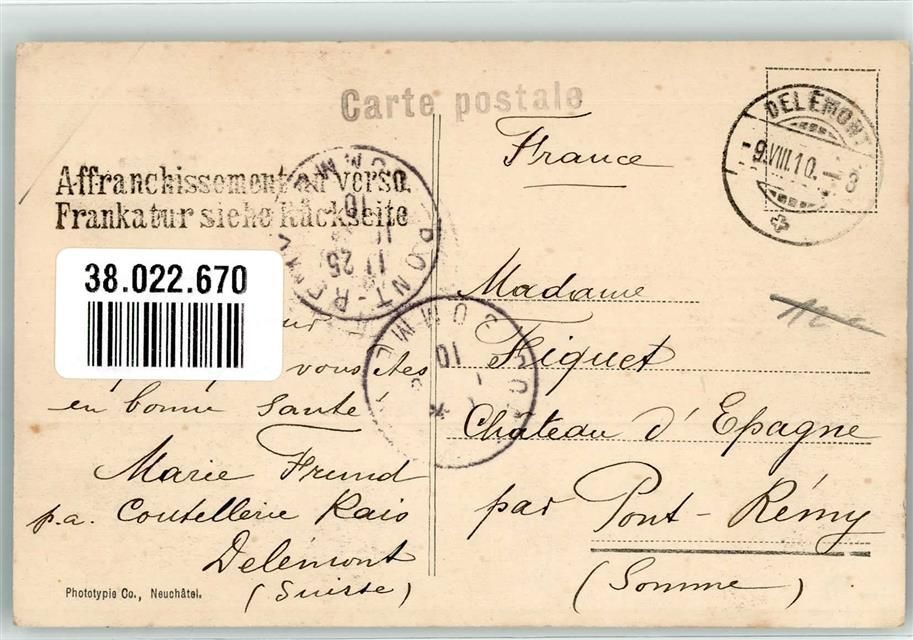 Carte postale
DELÉMONT
9.VIII.10.-3
Affranchissement au verso.
Frankatur siehe Rückseite
38.022.670
PONT-REMY
SOMME
vous êtes
en bonne santé
Marie Freund
p.a. Coutellerie Kais
Delémont
(Suisse)
Phototypie Co., Neuchâtel.
France
Madame
Fliquet
Château d'Epagne
par Pont-Rémy
(Somme)